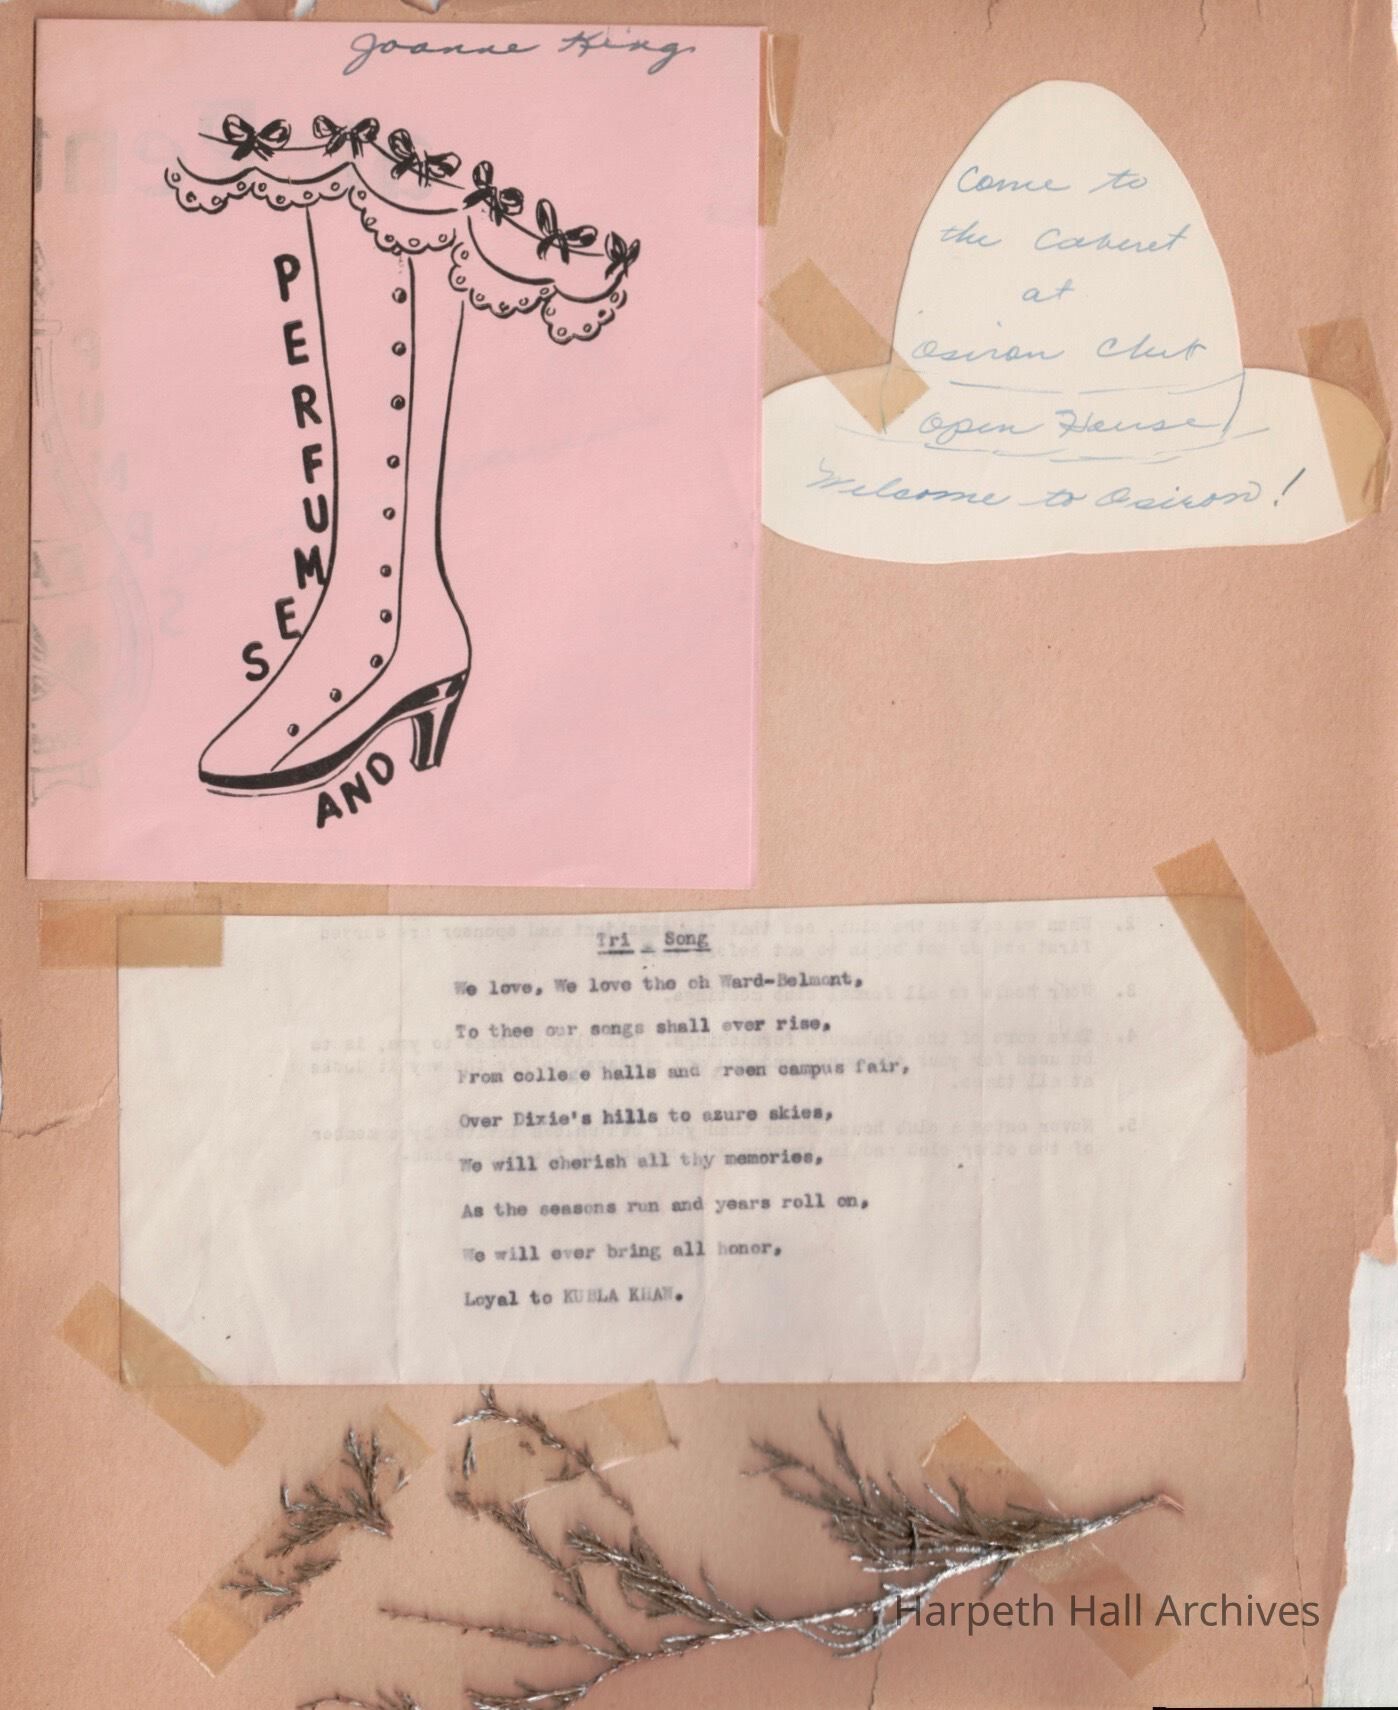 Joanne King
PERFUMES
AND
Come to
the Caberet
at
Osiron Club
Open House
Welcome to Osiron!
Tri - Song
We love, We love tho oh Ward-Belmont,
To thee our songs shall ever rise,
From colle e halls and  reen campus fair,
Over Dixie's hills to azure skies,
We will cherish all thy memories,
As the seasons run and years roll on,
We will ever bring all honor,
Loyal to KUBLA KHAN.
Harpeth Hall Archives